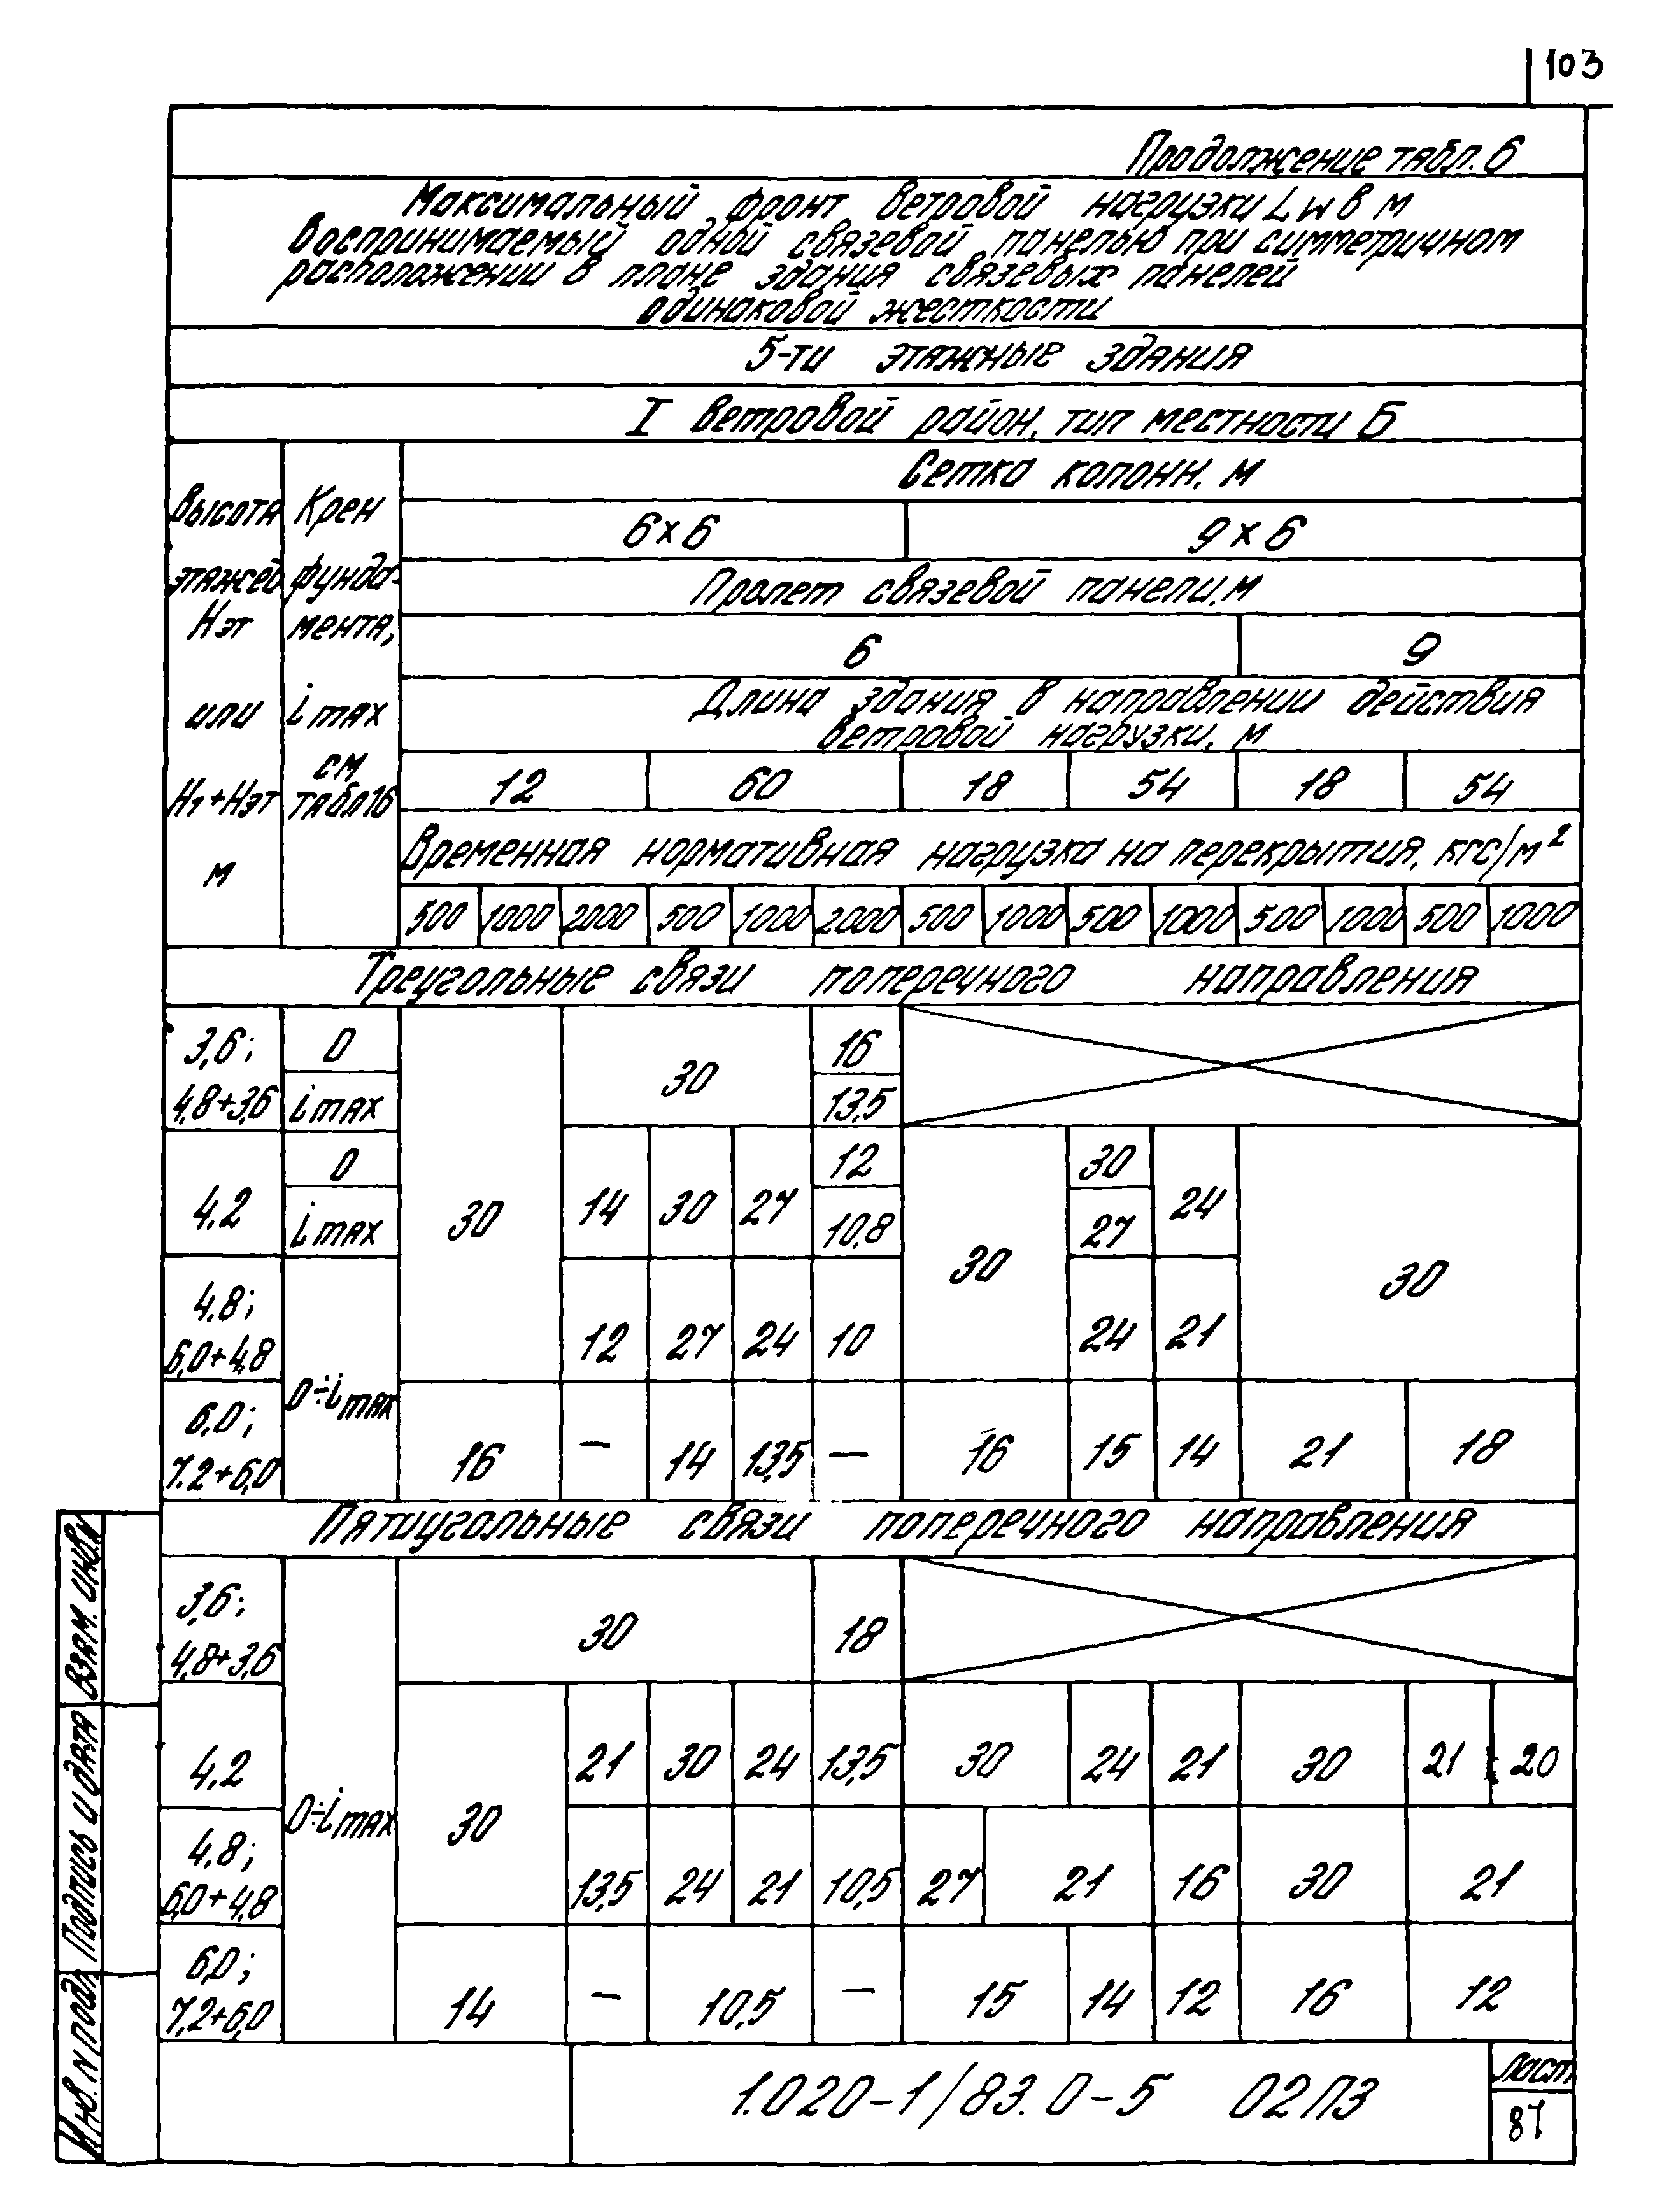 103
Продолжение табл. 6
Максимальный фронт ветровой нагрузки Lw в м
воспринимаемый одной связевой панелью при симметричном
расположении в плане здания связевых панелей
одинаковой жесткости
5-ти этажные здания
I ветровой район, тип местности Б
Высота этажей Нэт или Н1+Нэт м
Крен фунда-мента, i max см табл 16
Сетка колонн, м
6×6 9×6
Пролет связевой панели, м
6 9
Длина здания в направлении действия
ветровой нагрузки, м
12 60 18 54 18 54
Временная нормативная нагрузка на перекрытия, кгс/м²
500 1000 2000 500 1000 2000 500 1000 500 1000 500 1000 500 1000
Треугольные связи поперечного направления
3,6; 0 30 16
4,8+3,6 i max 13,5
0 12 30
4,2 30 14 30 27 24
i max 10,8 27
30 30
4,8;
6,0+4,8 12 27 24 10 24 21
0÷i max
6,0;
7.2+6,0 16 — 14 13,5 — 16 15 14 21 18
Пятиугольные связи поперечного направления
3,6;
4,8+3,6 30 18
4,2 21 30 24 13,5 30 24 21 30 21 20
0÷i max 30
4,8;
6,0+4,8 13,5 24 21 10,5 27 21 16 30 21
6,0;
7,2+6,0 14 — 10,5 — 15 14 12 16 12
Взам. инв. N
Подпись и дата
Инв. N подл
1.020-1/83. 0-5 02ПЗ
Лист
87